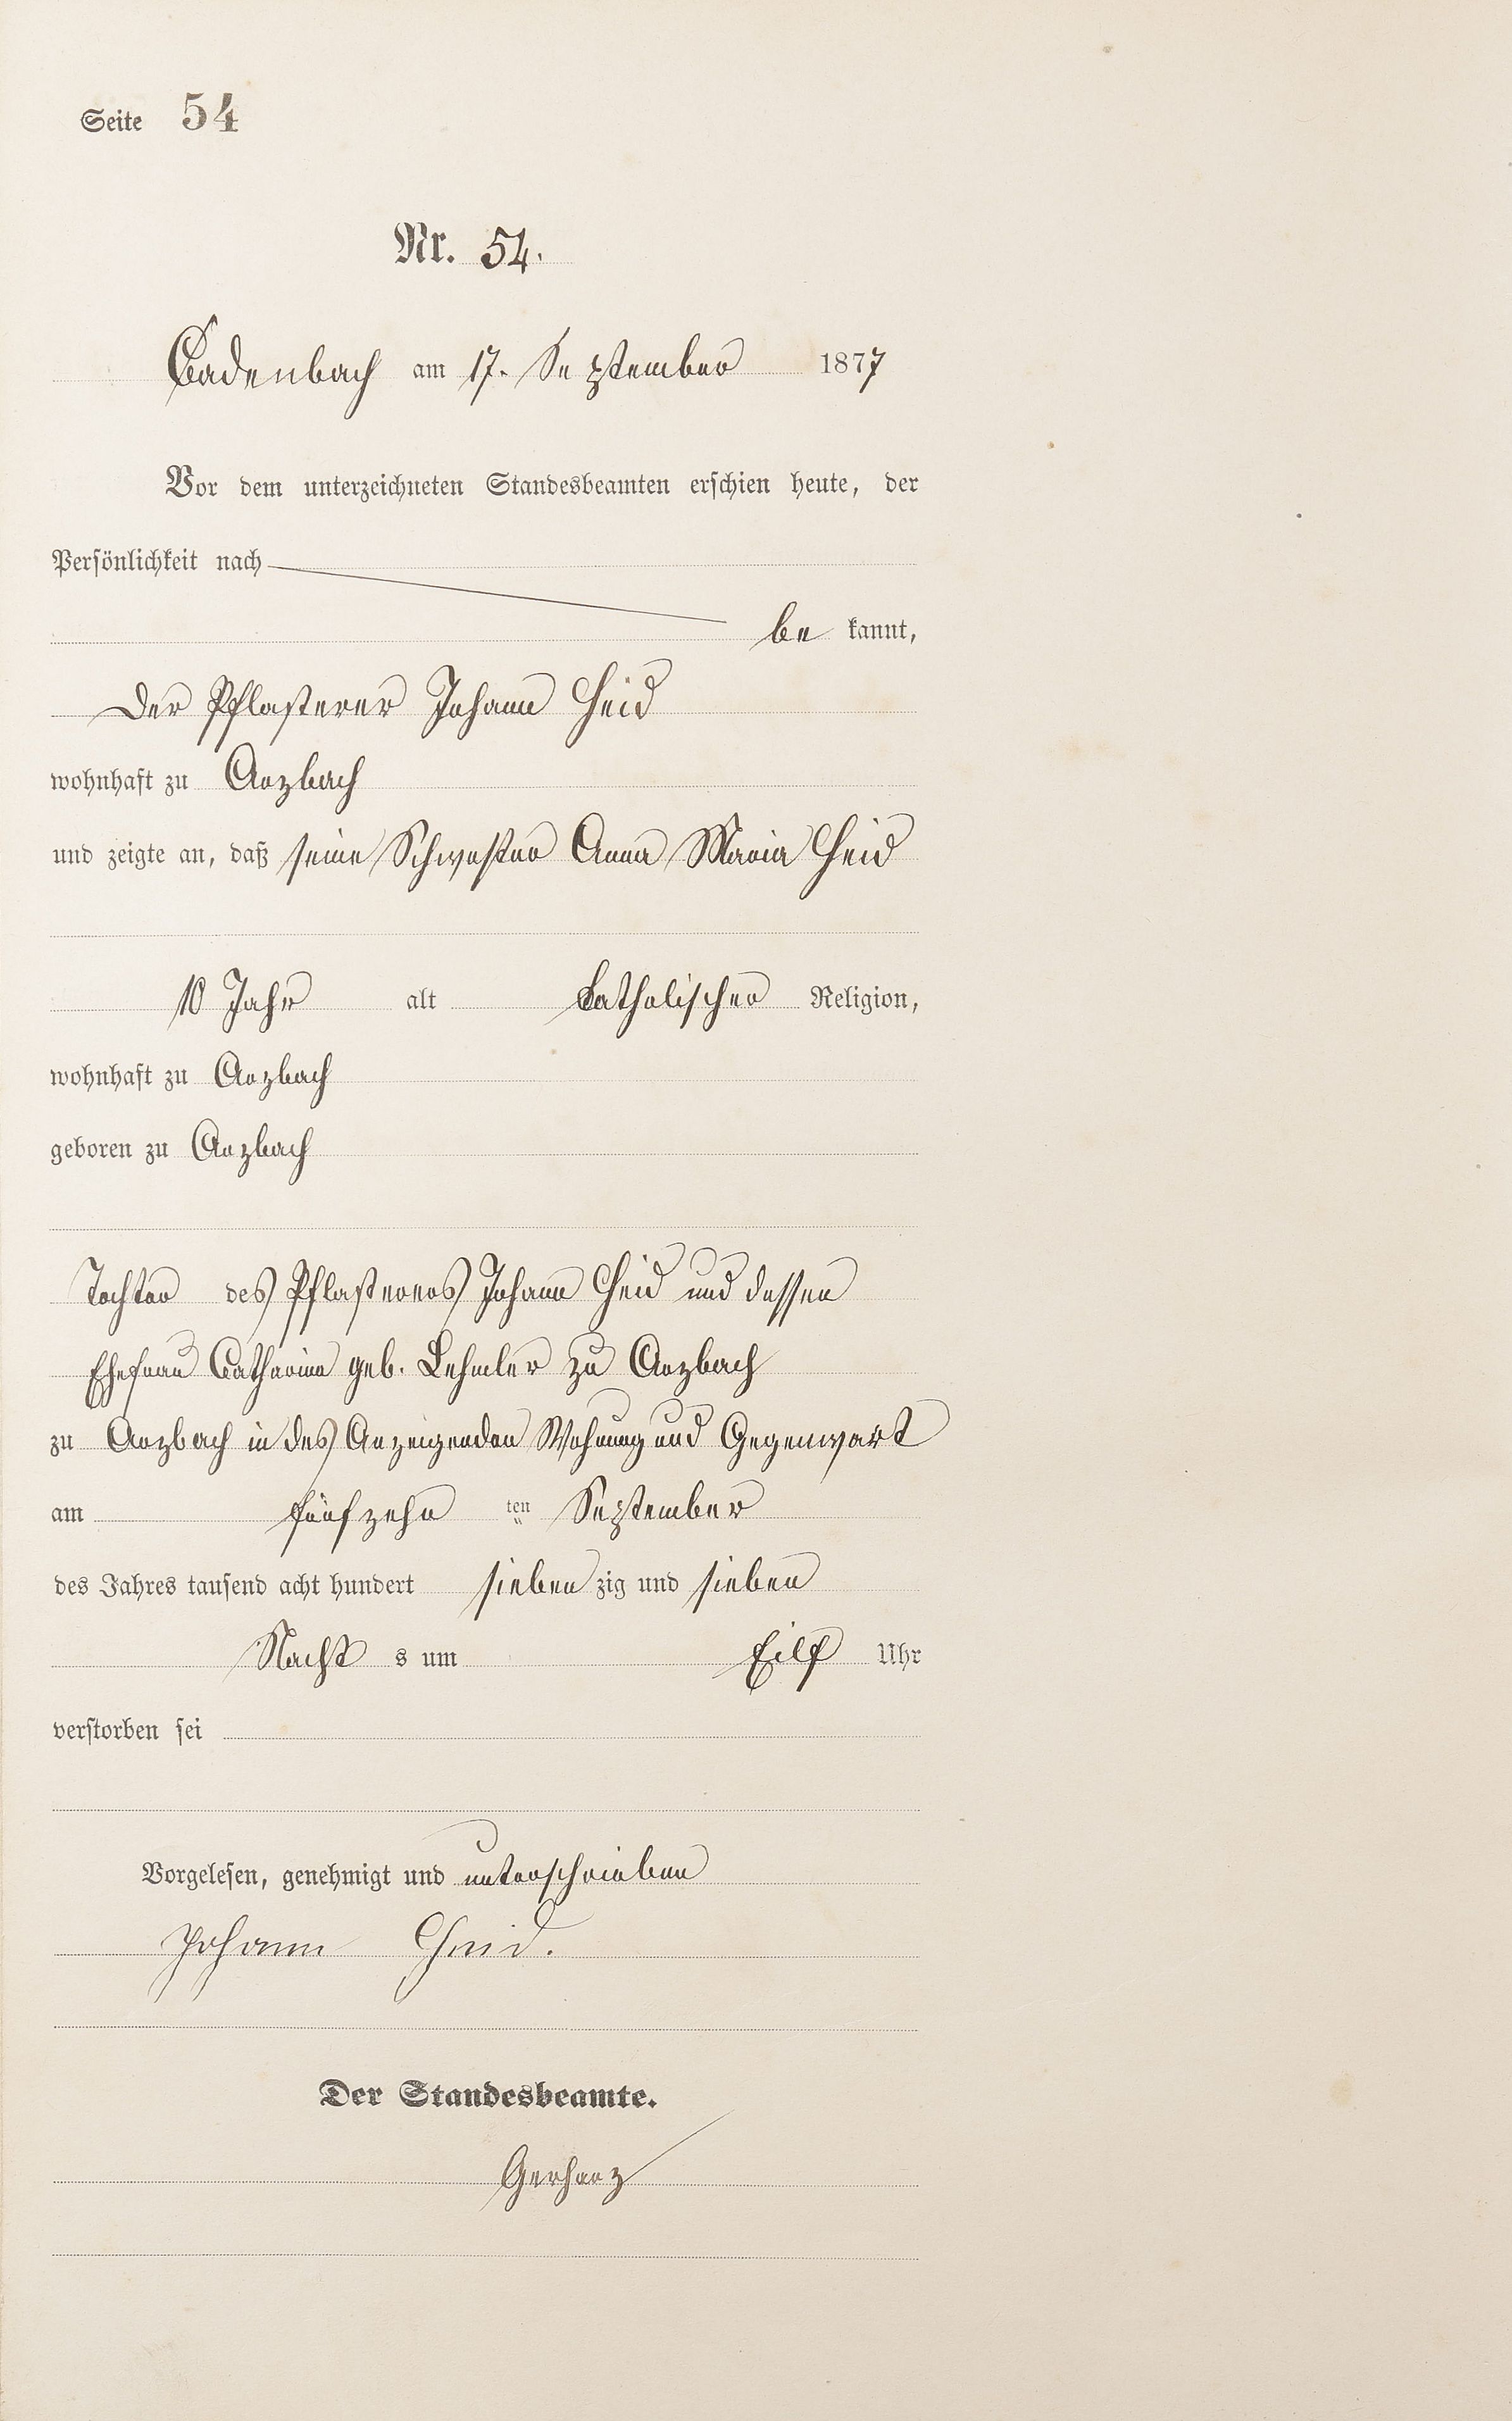 Seite 54
Nr. 54.
Cadenbach am 17. September 1877
Vor dem unterzeichneten Standesbeamten erschien heute, der
Persönlichkeit nach
be kannt,
Der Pflasterer Johann Heid
wohnhaft zu Arzbach
und zeigte an, daß seine Schwester Anna Maria Heid
10 Jahr alt katholischer Religion,
wohnhaft zu Arzbach
geboren zu Arzbach
Tochter des Pflasterers Johann Heid und dessen
Ehefrau Catharina geb. Lehmler zu Arzbach
zu Arzbach in des Anzeigenden Wohnung und Gegenwart
am fünfzehn ten September
des Jahres tausend acht hundert sieben zig und sieben
Nacht s um Eilf Uhr
verstorben sei
Vorgelesen, genehmigt und unterschrieben
Johann Heid.
Der Standesbeamte.
Gerharz